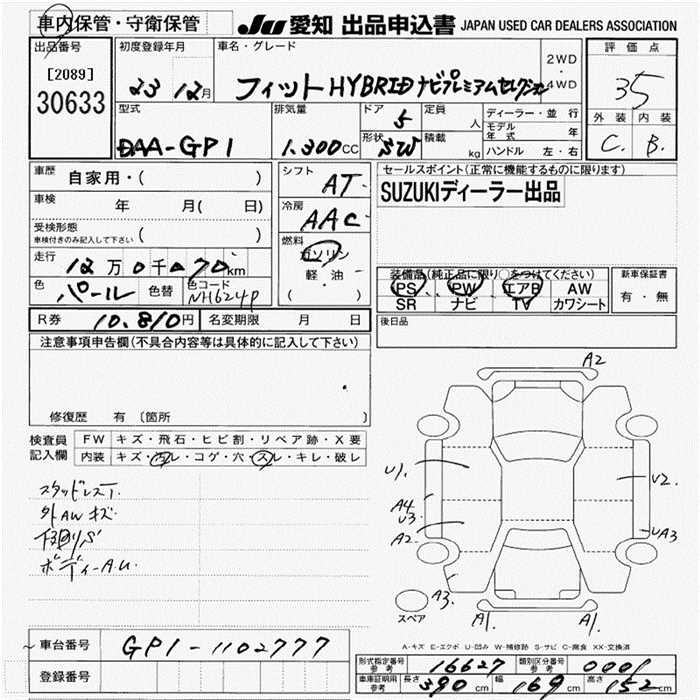 車内保管・守衛保管 JU 愛知 出品申込書 JAPAN USED CAR DEALERS ASSOCIATION
出品番号 初度登録年月 車名・グレード 評価点
[2089] 23 12月 フィット HYBRID ナビプレミアムセレクション 2WD・4WD 35
30633
型式 排気量 ドア 5 定員 人 ディーラー・並行 外装 内装
DAA-GP1 1.300CC 形状 5W 積載 kg モデル年式 年 C. B.
ハンドル 左・右
車歴 自家用・( ) シフト AT セールスポイント(正常に機能するものに限ります)
車検 年 月( 日) 冷房 AAC SUZUKIディーラー出品
受検形態
車検付きのみ記入して下さい ( ) 燃料 ガソリン
走行 12万0千070km 軽・油 装備品(純正品に限り○をつけてください) 新車保証書
色 パール 色替 色コード NH624P ( ・ ) PS PW エアB AW 有・無
SR ナビ TV カワシート
R券 10.810円 名変期限 月 日 後日品
注意事項申告欄(不具合内容等は具体的に記入して下さい)
修復歴 有 〔箇所
検査員 FW キズ・飛石・ヒビ割・リペア跡・X要
記入欄 内装 キズ・汚レ・コゲ・穴・スレ・キレ・破レ
スタッドレスT.
外AWキズ
下回りS
ボディーA.U
A2
U1. U2.
A4
U3
A2 UA3
A3.
スペア A1. A1.
A-キズ E-エクボ U-凹み W-補修跡 S-サビ C-腐食 XX-交換済
車台番号 GP1-1102777
登録番号
形式指定番号 参考 16627 類別区分番号 参考 0001
車庫証明用 参考 長さ 390cm 幅 169cm 高さ 152cm